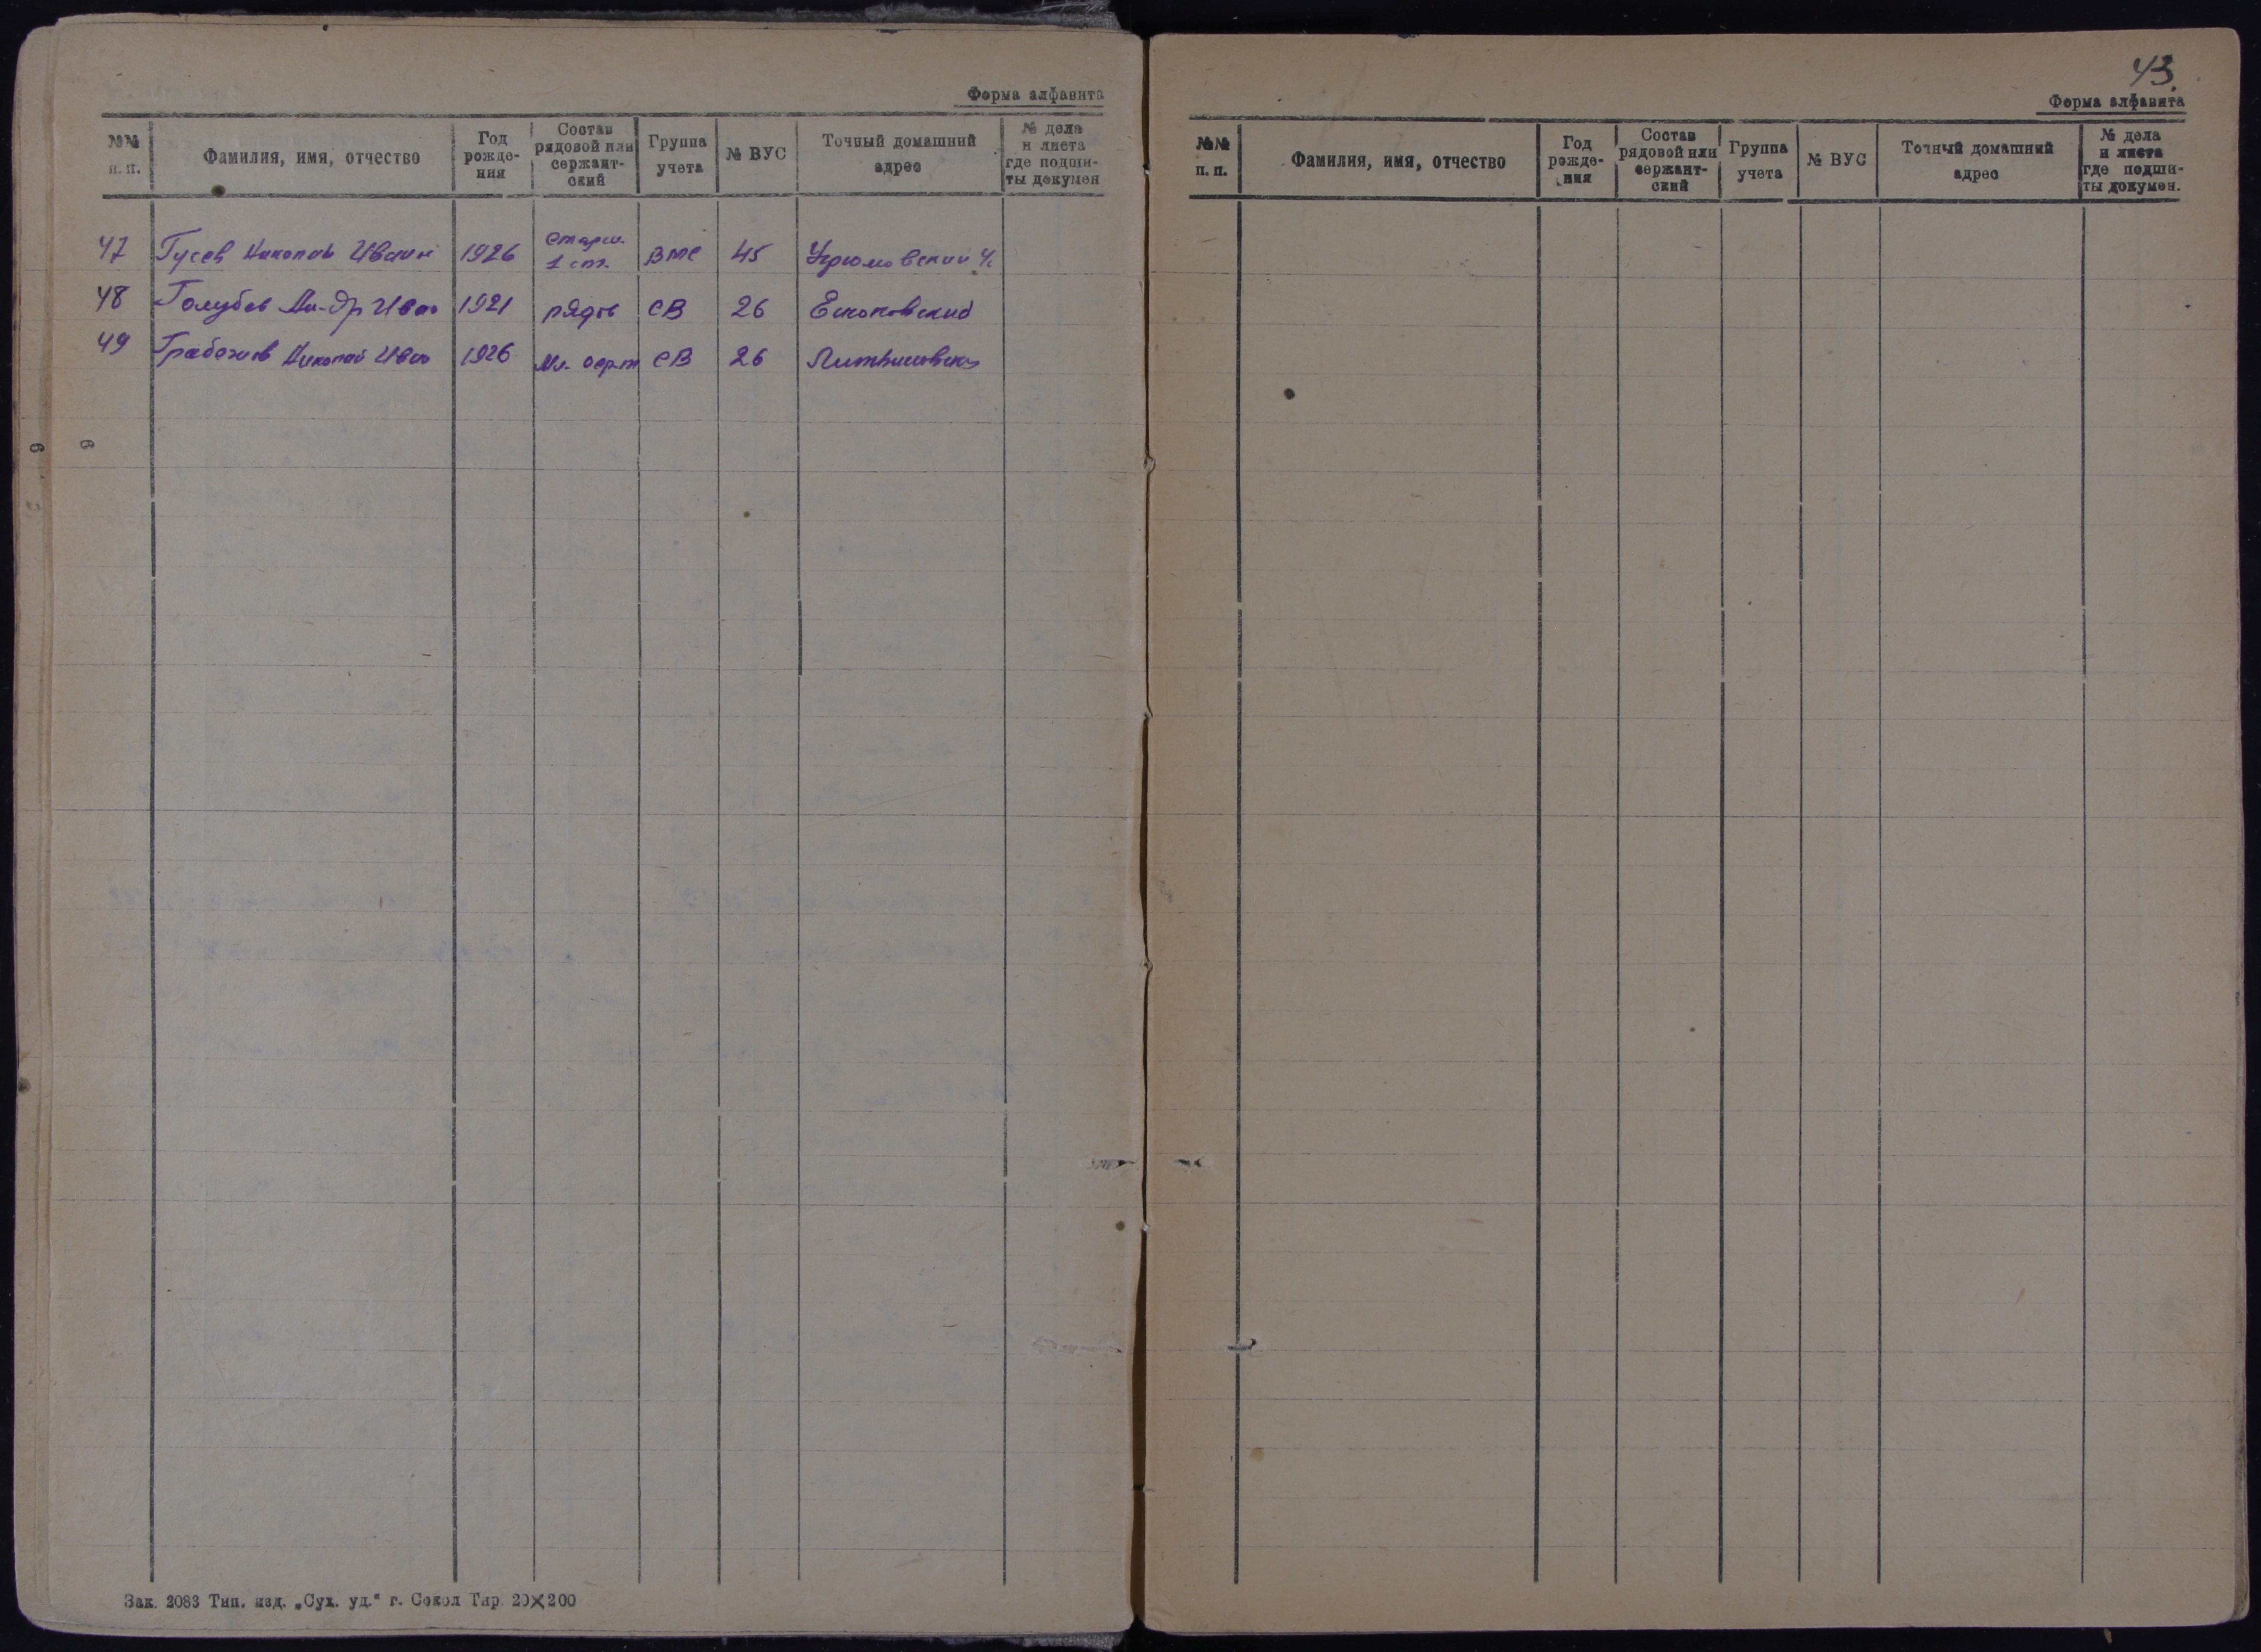 Форма алфавита
№№ п. п. Фамилия, имя, отчество Год рожде- ния Состав рядовой или сержант- ский Группа учета № ВУС Точный домашний адрес № дела и листа где подши- ты докумен
47 Гусев Николай Иван 1926 старш. 1 ст. ВМС 45 Угрюмовский
48 Голубев Ал-др Иван 1921 рядов СВ 26
49 Николай Иван 1926 Мл. серж СВ 26
Зак. 2083 Тип. изд. „Сух. уд.“ г. Сокол Тир. 20×200
43.
Форма алфавита
№№ п. п. Фамилия, имя, отчество Год рожде- ния Состав рядовой или сержант- ский Группа учета № ВУС Точный домашний адрес № дела и листа где подши- ты докумен.